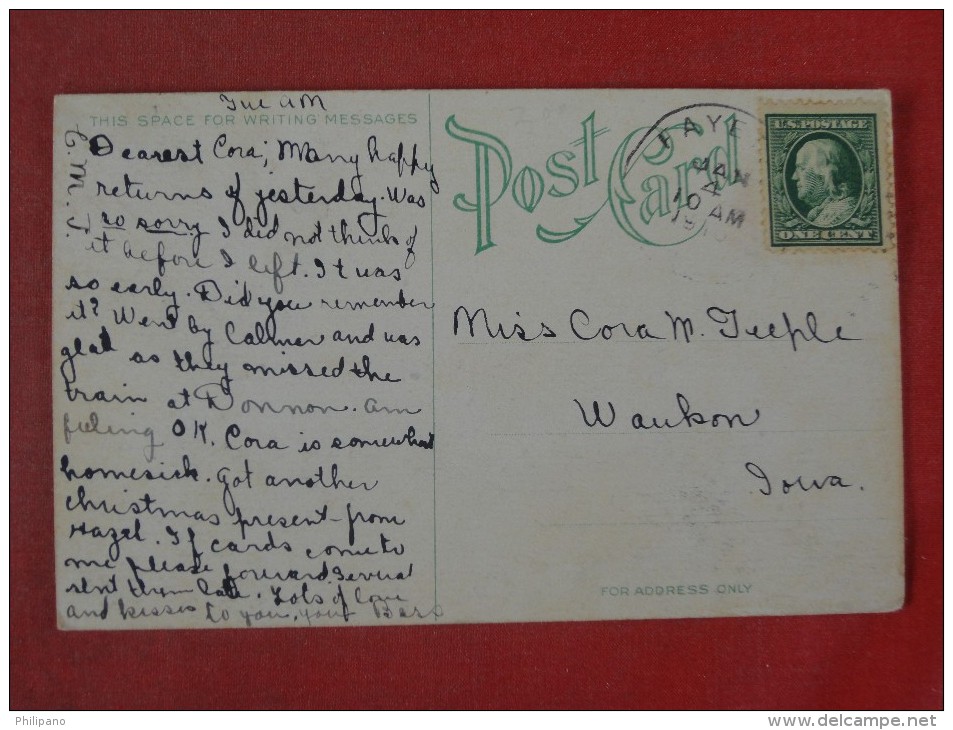 Tue AM
THIS SPACE FOR WRITING MESSAGES
Dearest Cora; Many happy
returns of yesterday. Was
so sorry I did not think of
it before I left. It was
so early. Did you remember
it? Went by Calmar and was
glad as they missed the
train at Donnon. Am
feeling OK. Cora is somewhat
homesick. Got another
christmas present from
Hazel. If cards come to
me please forward. Several
sent them late. Lots of love
and kisses to you, your
Post Card
FAYE
JAN
10 AM
U.S. POSTAGE
ONE CENT
Miss Cora M. Teeple
Waukon
Iowa.
FOR ADDRESS ONLY
Philipano
www.delcampe.net